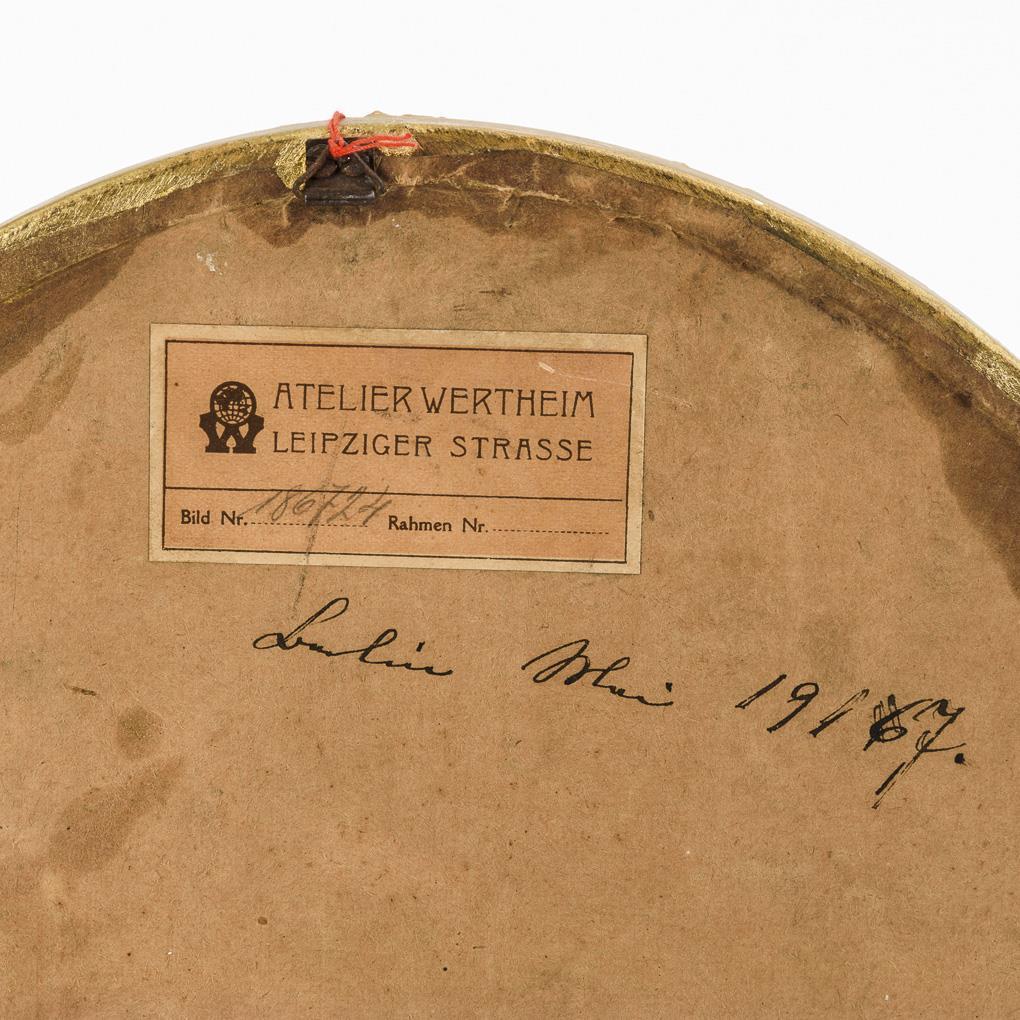 ATELIER WERTHEIM
LEIPZIGER STRASSE
Bild Nr. 186724 Rahmen Nr.
Berlin Mai 1917.